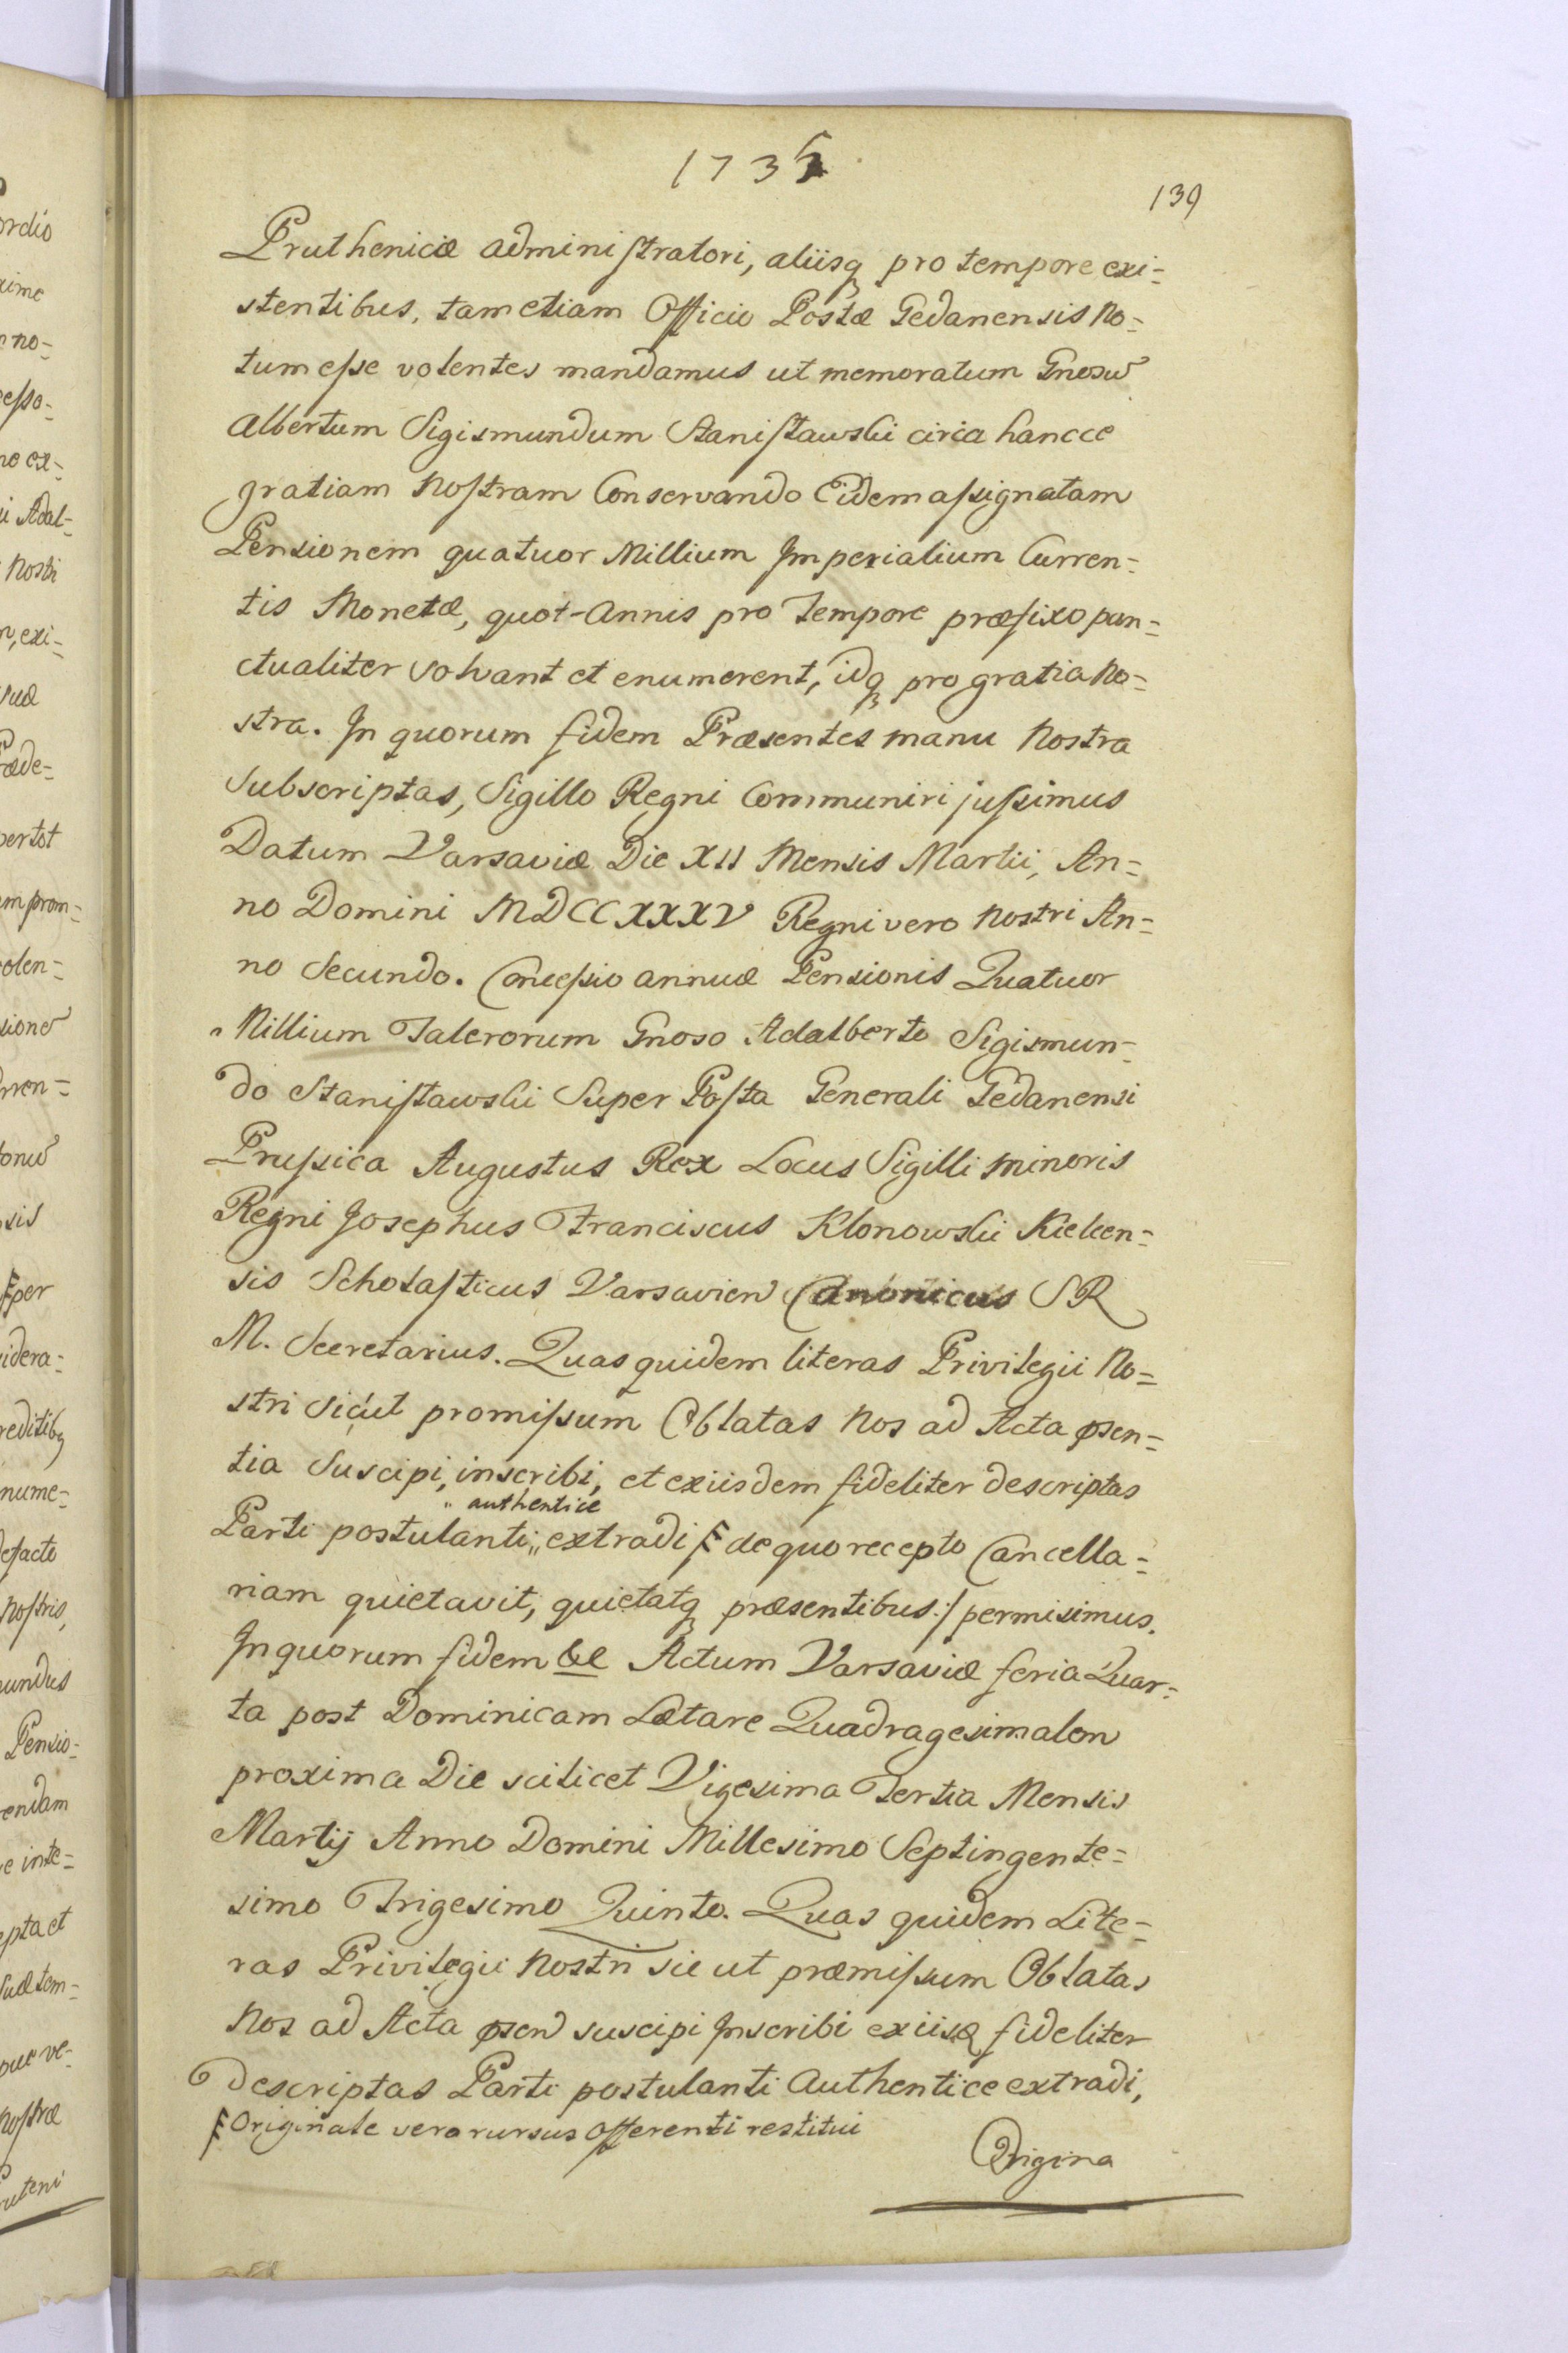 1735
139
Prutheniciæ administratori, aliisq pro tempore exi=
stentibus, tam etiam Officio Postæ Gedanensis no=
tum esse volentes mandamus ut memoratum Gnosum
Albertum Sigismundum Stanisławski circa hancce
gratiam nostram Conservando Eidem assignatam
Pensionem quatuor Millium Imperialium Curren=
tis Monetæ, quot-annis pro tempore præfixo pun=
ctualiter solvant et enumerent, idq pro gratia no=
stra. In quorum fidem Præsentes manu nostra
subscriptas, Sigillo Regni Communiri jussimus
Datum Varsaviæ Die XII Mensis Martii, An=
no Domini MDCCXXXV Regni vero nostri An=
no Secundo. Concessio annuæ Pensionis Quatuor
Millium Talerorum Gnoso Adalberto Sigismun=
do Stanisławski Super Posta Generali Gedanensi
Prussica Augustus Rex Locus Sigilli minoris
Regni Josephus Franciscus Klonowski Kielcen=
sis Scholasticus Varsavien Canonicus S R
M. Secretarius. Quas quidem literas Privilegii no=
stri sicut promissum Oblatas nos ad Acta psen=
tia suscipi, inscribi, et ex iisdem fideliter descriptas
" authentice
Parti postulanti " extradi de quo recepto Cancella=
riam quietavit, quietatq præsentibus :/ permisimus.
In quorum fidem &c Actum Varsaviæ feria Quar=
ta post Dominicam Lætare Quadragesimalem
proxima Die scilicet Vigesima Tertia Mensis
Martij Anno Domini Millesimo Septingente=
simo Trigesimo Quinto. Quas quidem Lite=
ras Privilegii nostri sic ut præmissum Oblatas
nos ad Acta psen suscipi Inscribi ex iisq fideliter
descriptas Parti postulanti Authentice extradi,
Originale vero rursus Offerenti restitui
Origina